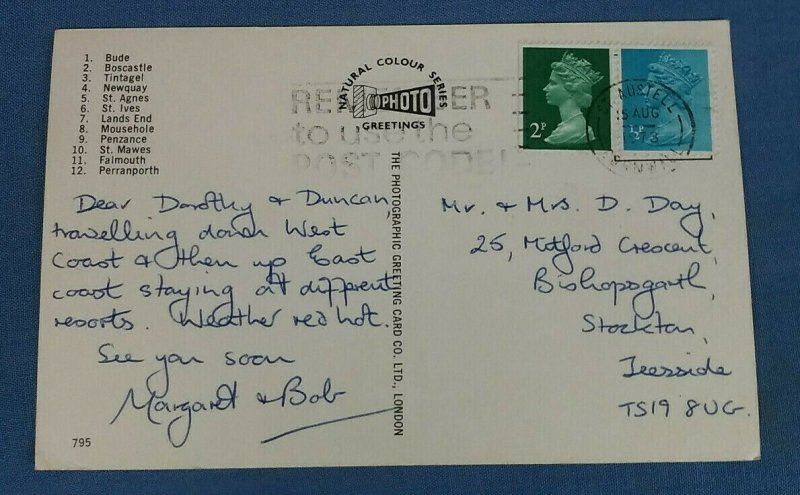 1. Bude
2. Boscastle
3. Tintagel
4. Newquay
5. St. Agnes
6. St. Ives
7. Lands End
8. Mousehole
9. Penzance
10. St. Mawes
11. Falmouth
12. Perranporth
NATURAL COLOUR SERIES
PHOTO
GREETINGS
REMEMBER
to use the
POST CODE
2P
½P
AUSTELL
15 AUG
THE PHOTOGRAPHIC GREETING CARD CO. LTD., LONDON
Dear Dorothy & Duncan,
travelling down West
Coast & then up East
coast staying at different
resorts. Weather red hot.
See you soon
Margaret & Bob
795
Mr. & Mrs. D. Day,
25, Mitford Crescent,
Bishopsgarth,
Stockton,
Teesside
TS19 8UG.